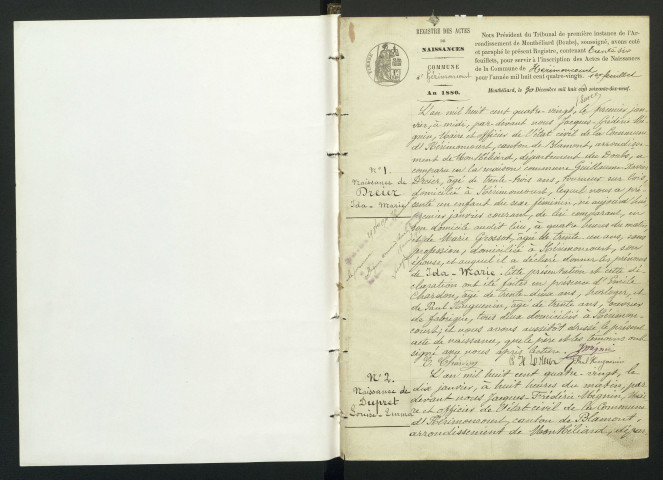 REGISTRE DES ACTES
DE
NAISSANCES
COMMUNE
d'Hérimoncourt
An 1880.
Nous Président du Tribunal de première instance de l'Ar-
rondissement de Montbéliard (Doubs), soussigné, avons coté
et paraphé le présent Registre, contenant trente six
feuillets, pour servir à l'inscription des Actes de Naissances
de la Commune de Hérimoncourt
pour l'année mil huit cent quatre-vingt.
Montbéliard, le Décembre mil huit cent soixante-dix-neuf.
L'an mil huit cent quatre-vingt, le premier jan-
vier, à midi, par devant nous Jacques-Frédéric Mé-
gnin, Maire et officier de l'état civil de la Commune
d'Hérimoncourt, canton de Blamont, arrondisse-
ment de Montbéliard, département du Doubs, a
comparu en la maison commune Guillaume
N° 1.
Naissance de
Dreier
Ida-Marie
Dreier, âgé de trente-trois ans, tourneur sur bois,
domicilié à Hérimoncourt, lequel nous a pré-
senté un enfant du sexe féminin, né aujourd'hui
premier janvier courant, de lui comparant, en
son domicile audit lieu, à quatre heures du matin,
et de Marie Grosset, âgée de trente un ans, sans
profession, domiciliée à Hérimoncourt, son
épouse, et auquel il a déclaré donner les prénoms
de Ida-Marie. Cette présentation et cette dé-
claration ont été faites en présence d'Emile
Chardon, âgé de trente-deux ans, horloger, et
de Paul Huguenin, âgé de trente ans,
de fabrique, tous deux domiciliés à Hérimon-
court; et nous avons aussitôt dressé le présent
acte de naissance, que le père et les témoins ont
signé avec nous après lecture.
Paul Huguenin
N° 2.
Naissance de
Dupret
Louise-Emma
L'an mil huit cent quatre-vingt, le
dix janvier, à huit heures du matin, par
devant nous Jacques-Frédéric Mégnin, Mai-
re et officier de l'état civil de la Commune
d'Hérimoncourt, canton de Blamont,
arrondissement de Montbéliard, dépar-